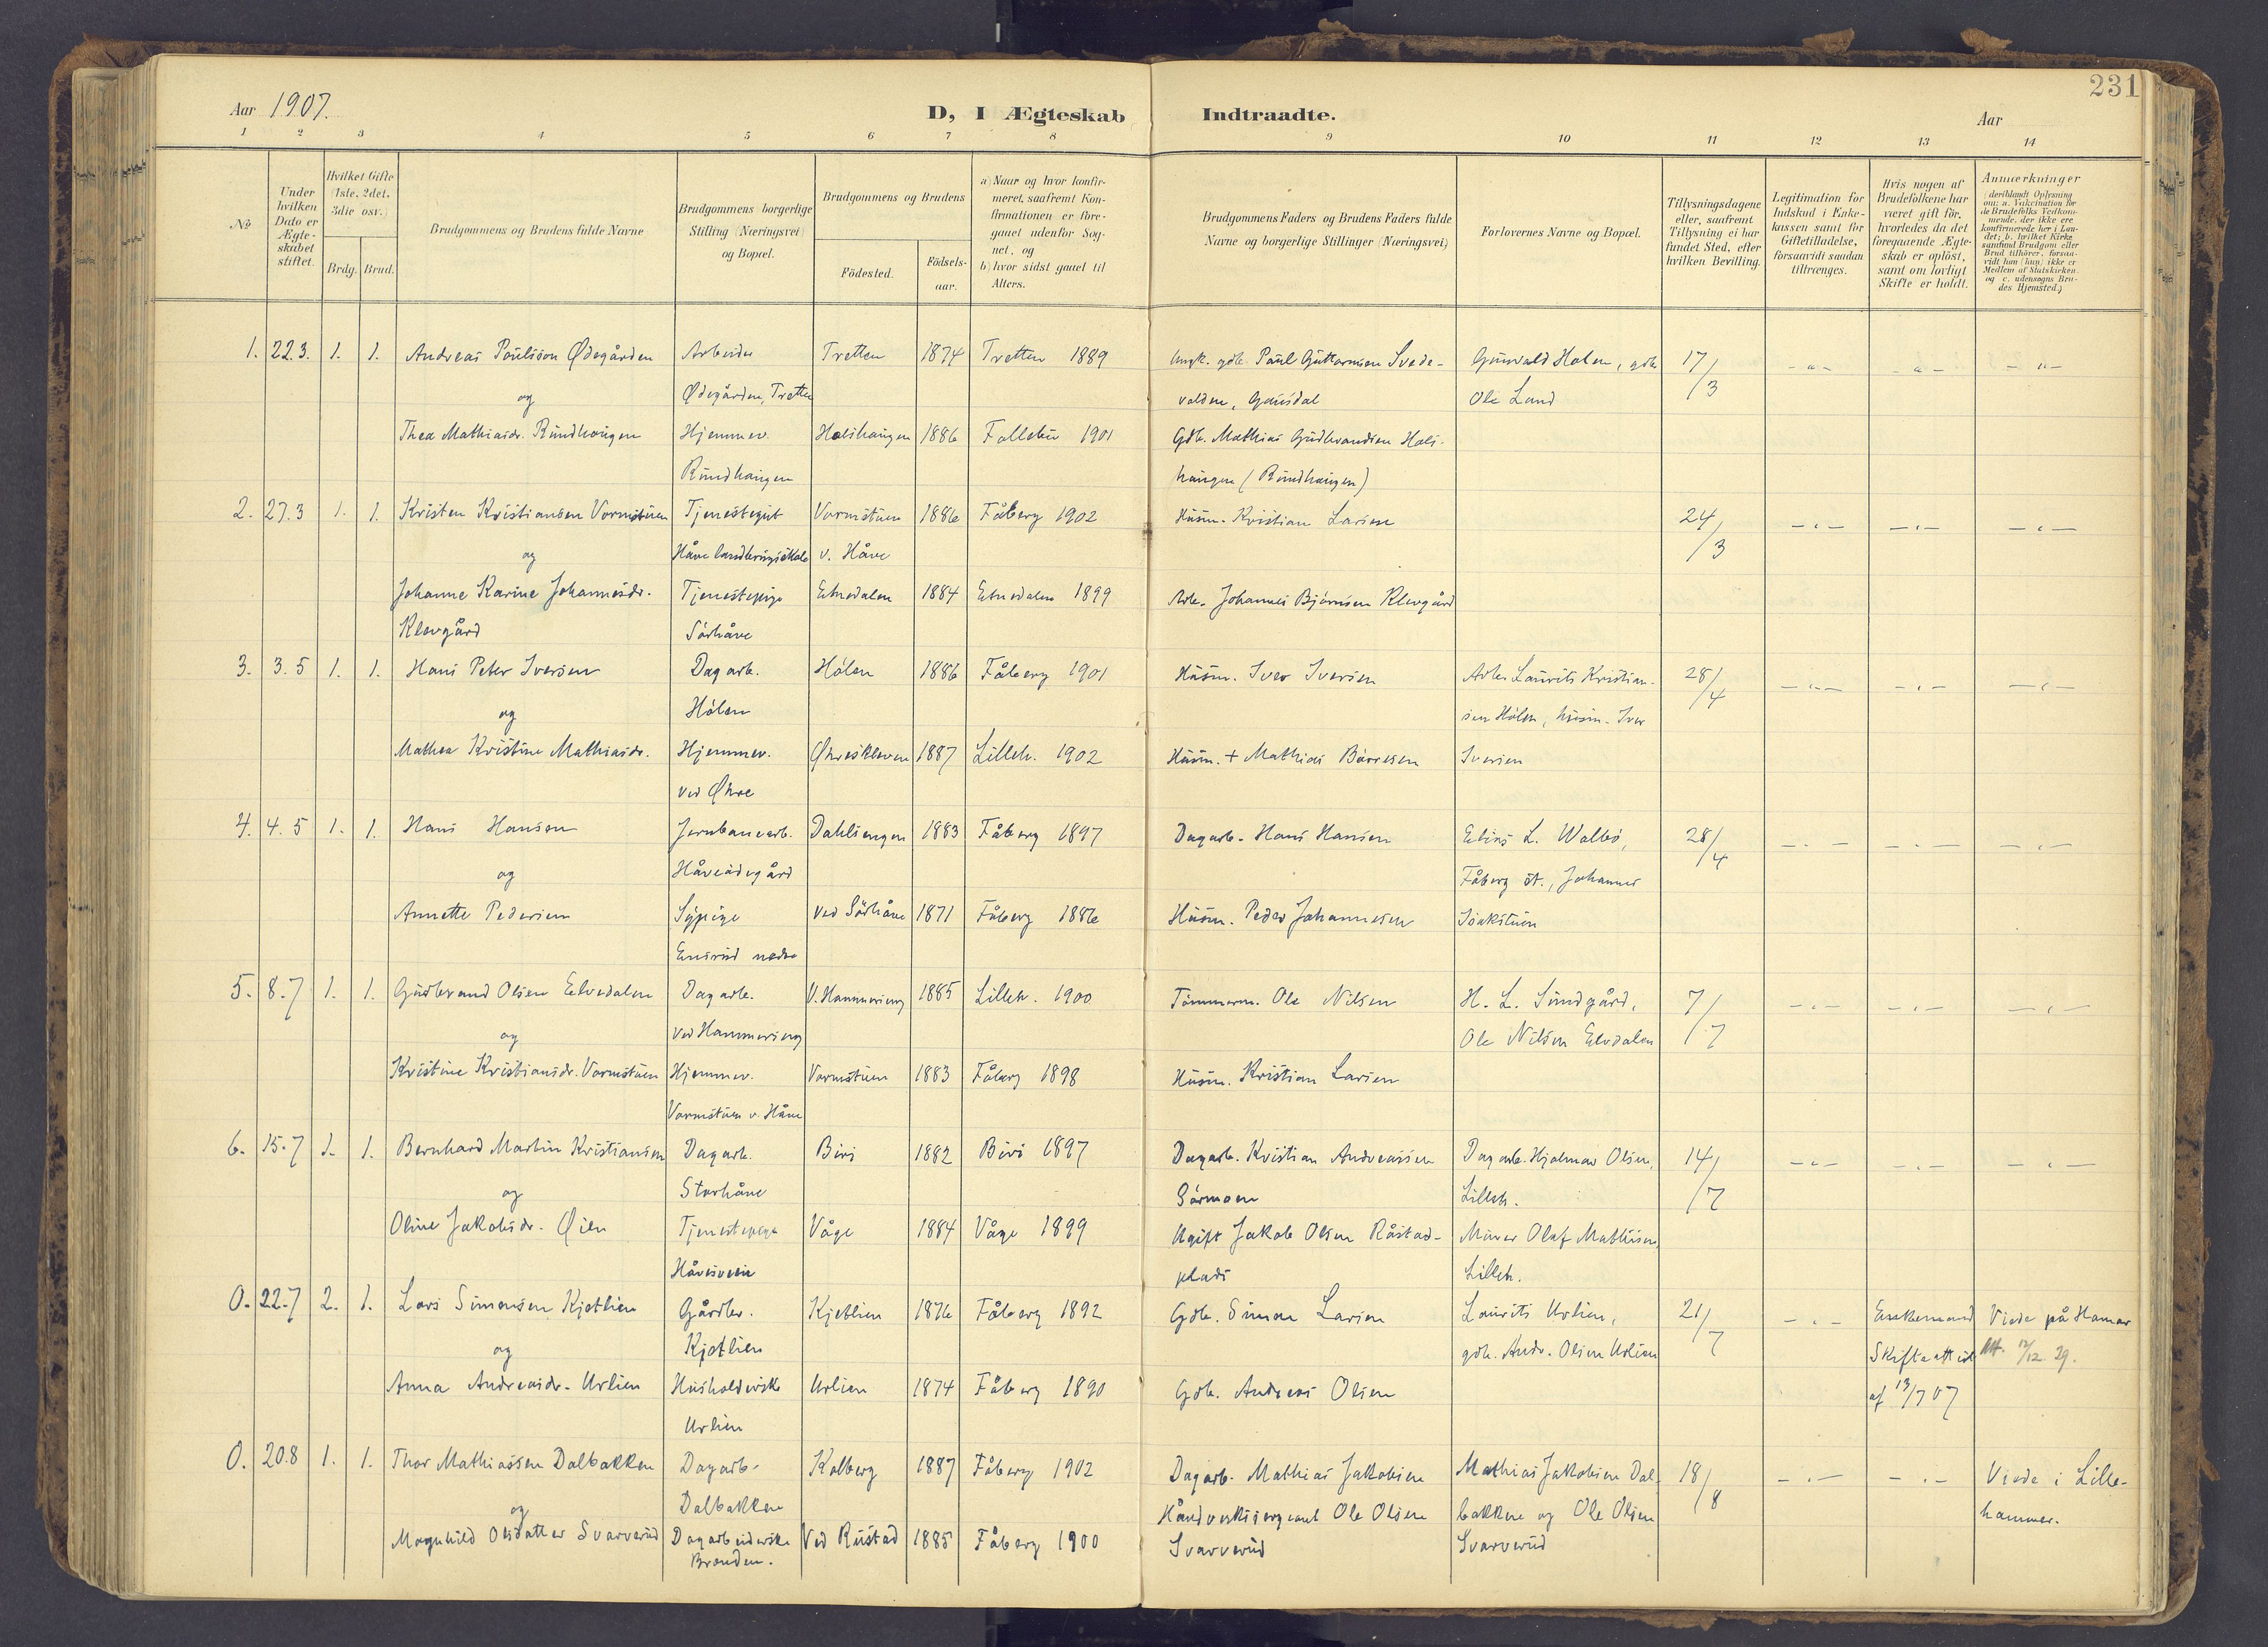 231
Aar 1907. D, I Ægteskab Indtraadte. Aar
1 2 3 4 5 6 7 8 9 10 11 12 13 14
No
Under hvilken Dato er Ægteskabet stiftet.
Hvilket Gifte (1ste, 2det, 3die osv.)
Brdg. Brud.
Brudgommens og Brudens fulde Navne
Brudgommens borgerlige Stilling (Næringsvei) og Bopæl.
Brudgommens og Brudens
Födested. Födsels-aar.
a) Naar og hvor konfir-
meret, saafremt Kon-
firmationen er fore-
gaaet udenfor Sog-
net, og
b) hvor sidst gaaet til
Alters.
Brudgommens Faders og Brudens Faders fulde
Navne og borgerlige Stillinger (Næringsvei)
Forlovernes Navne og Bopæl.
Tillysningsdagene
eller, saafremt
Tillysning ei har
fundet Sted, efter
hvilken Bevilling.
Legitimation for
Indskud i Enke-
kassen samt for
Giftetilladelse,
forsaavidt saadan
tiltrænges.
Hvis nogen af
Brudefolkene har
været gift før,
hvorledes da det
foregaaende Ægte-
skab er opløst,
samt om lovligt
Skifte er holdt.
Anmærkninger
(deriblandt Oplysning
om: a. Vakcination for
de Brudefolks Vedkom-
mende, der ikke ere
konfirmerede her i Lan-
det; b. hvilket Kirke
samfund Brudgom eller
Brud tilhører, forsaa-
vidt han (hun) ikke er
Medlem af Statskirken.
og c. udensogns Bru-
des Hjemsted.)
1. 22.3. 1. 1. Andreas Paulsson Ødegården Arbeider Tretten 1874 Tretten 1889 Paul Guttormsen Svede- Gunvald Holen, gdb 17/3 - " - - " - - " -
og Ødegården, Tretten volden, Gausdal Ole Lund
Thea Mathiasdr. Rundhaugen Hjemmev. Halshaugen 1886 Follebu 1901 Gdb. Mathias Gudbrandsen Hals-
Rundhaugen haugen (Rundhaugen)
2. 27.3 1. 1. Kristen Kristiansen Vormstuen Tjenestegut Vormstuen 1886 Fåberg 1902 Husm. Kristian Larsen 24/3 - " - - " - - " -
og Håve landbrugsskole v. Håve
Johanne Karine Johannesdr. Tjenestepige Etnedalen 1884 Etnedalen 1899 Arb. Johannes Bjørnsen Klevgård
Klevgård Sørhåve
3. 3.5 1. 1. Hans Peter Iversen Dagarb. Hølen 1886 Fåberg 1901 Husm. Iver Iversen Arb. Laurits Kristian- 28/4 - " - - " - - " -
og Hølen sen Hølen, husm. Iver
Mathea Kristine Mathiasdr. Hjemmev. Øhreskleven 1887 Lilleh. 1902 Husm. + Mathias Børresen Iversen
ved Øhre
4. 4.5 1. 1. Hans Hansen Jernbanearb. Dahlsengen 1883 Fåberg 1897 Dagarb. Hans Hansen Elias L. Walbø, 28/4 - " - - " - - " -
og Håveødegård Fåberg st., Johannes
Annette Pedersen Sypige ved Sørhåve 1871 Fåberg 1886 Husm. Peder Johannesen
Ensrud nedre
5. 8.7 1. 1. Gudbrand Olsen Elvedalen Dagarb. V. Hammereng 1885 Lilleh. 1900 Tømmerm. Ole Nilsen H. L. Sundgård, 7/7 - " - - " - - " -
og ved Hammereng Ole Nilsen Elvdalen
Kristine Kristiansdr. Vormstuen Hjemmev. Vormstuen 1883 Fåberg 1898 Husm. Kristian Larsen
Vormstuen v. Håve
6. 15.7 1. 1. Bernhard Martin Kristiansen Dagarb. Biri 1882 Biri 1897 Dagarb. Kristian Andreassen Dagarb. Hjalmar Olsen, 14/7 - " - - " - - " -
og Storhåve Sørmoen Lilleh.
Oline Jakobsdr. Øien Tjenestepige Våge 1884 Våge 1899 Ugift Jakob Olsen Råstad- Murer Olaf Mathisen,
plads Lilleh.
0. 22.7 2. 1. Lars Simensen Kjetlien Gårdbr. Kjetlien 1876 Fåberg 1892 Gdb. Simen Larsen Laurits Urlien, 21/7 - " - Enkemand Viede på Hamar
og Kjetlien gdb. Andr. Olsen Urlien Skifteattest Att. 12/12 29.
Anna Andreasdr. Urlien Husholderske Urlien 1874 Fåberg 1890 Gdb. Andreas Olsen af 13/7 07
Urlien
0. 20.8 1. 1. Thor Mathiassen Dalbakken Dagarb. Kalberg 1887 Fåberg 1902 Dagarb. Mathias Jakobsen Mathias Jakobsen Dal- 18/8 - " - - " - Viede i Lille-
og Dalbakken Håndverkssergeant Ole Olsen bakken og Ole Olsen hammer.
Magnhild Olsdatter Svarverud Dagarbeiderske Ved Rustad 1885 Fåberg 1900 Svarverud Svarverud
Branden.